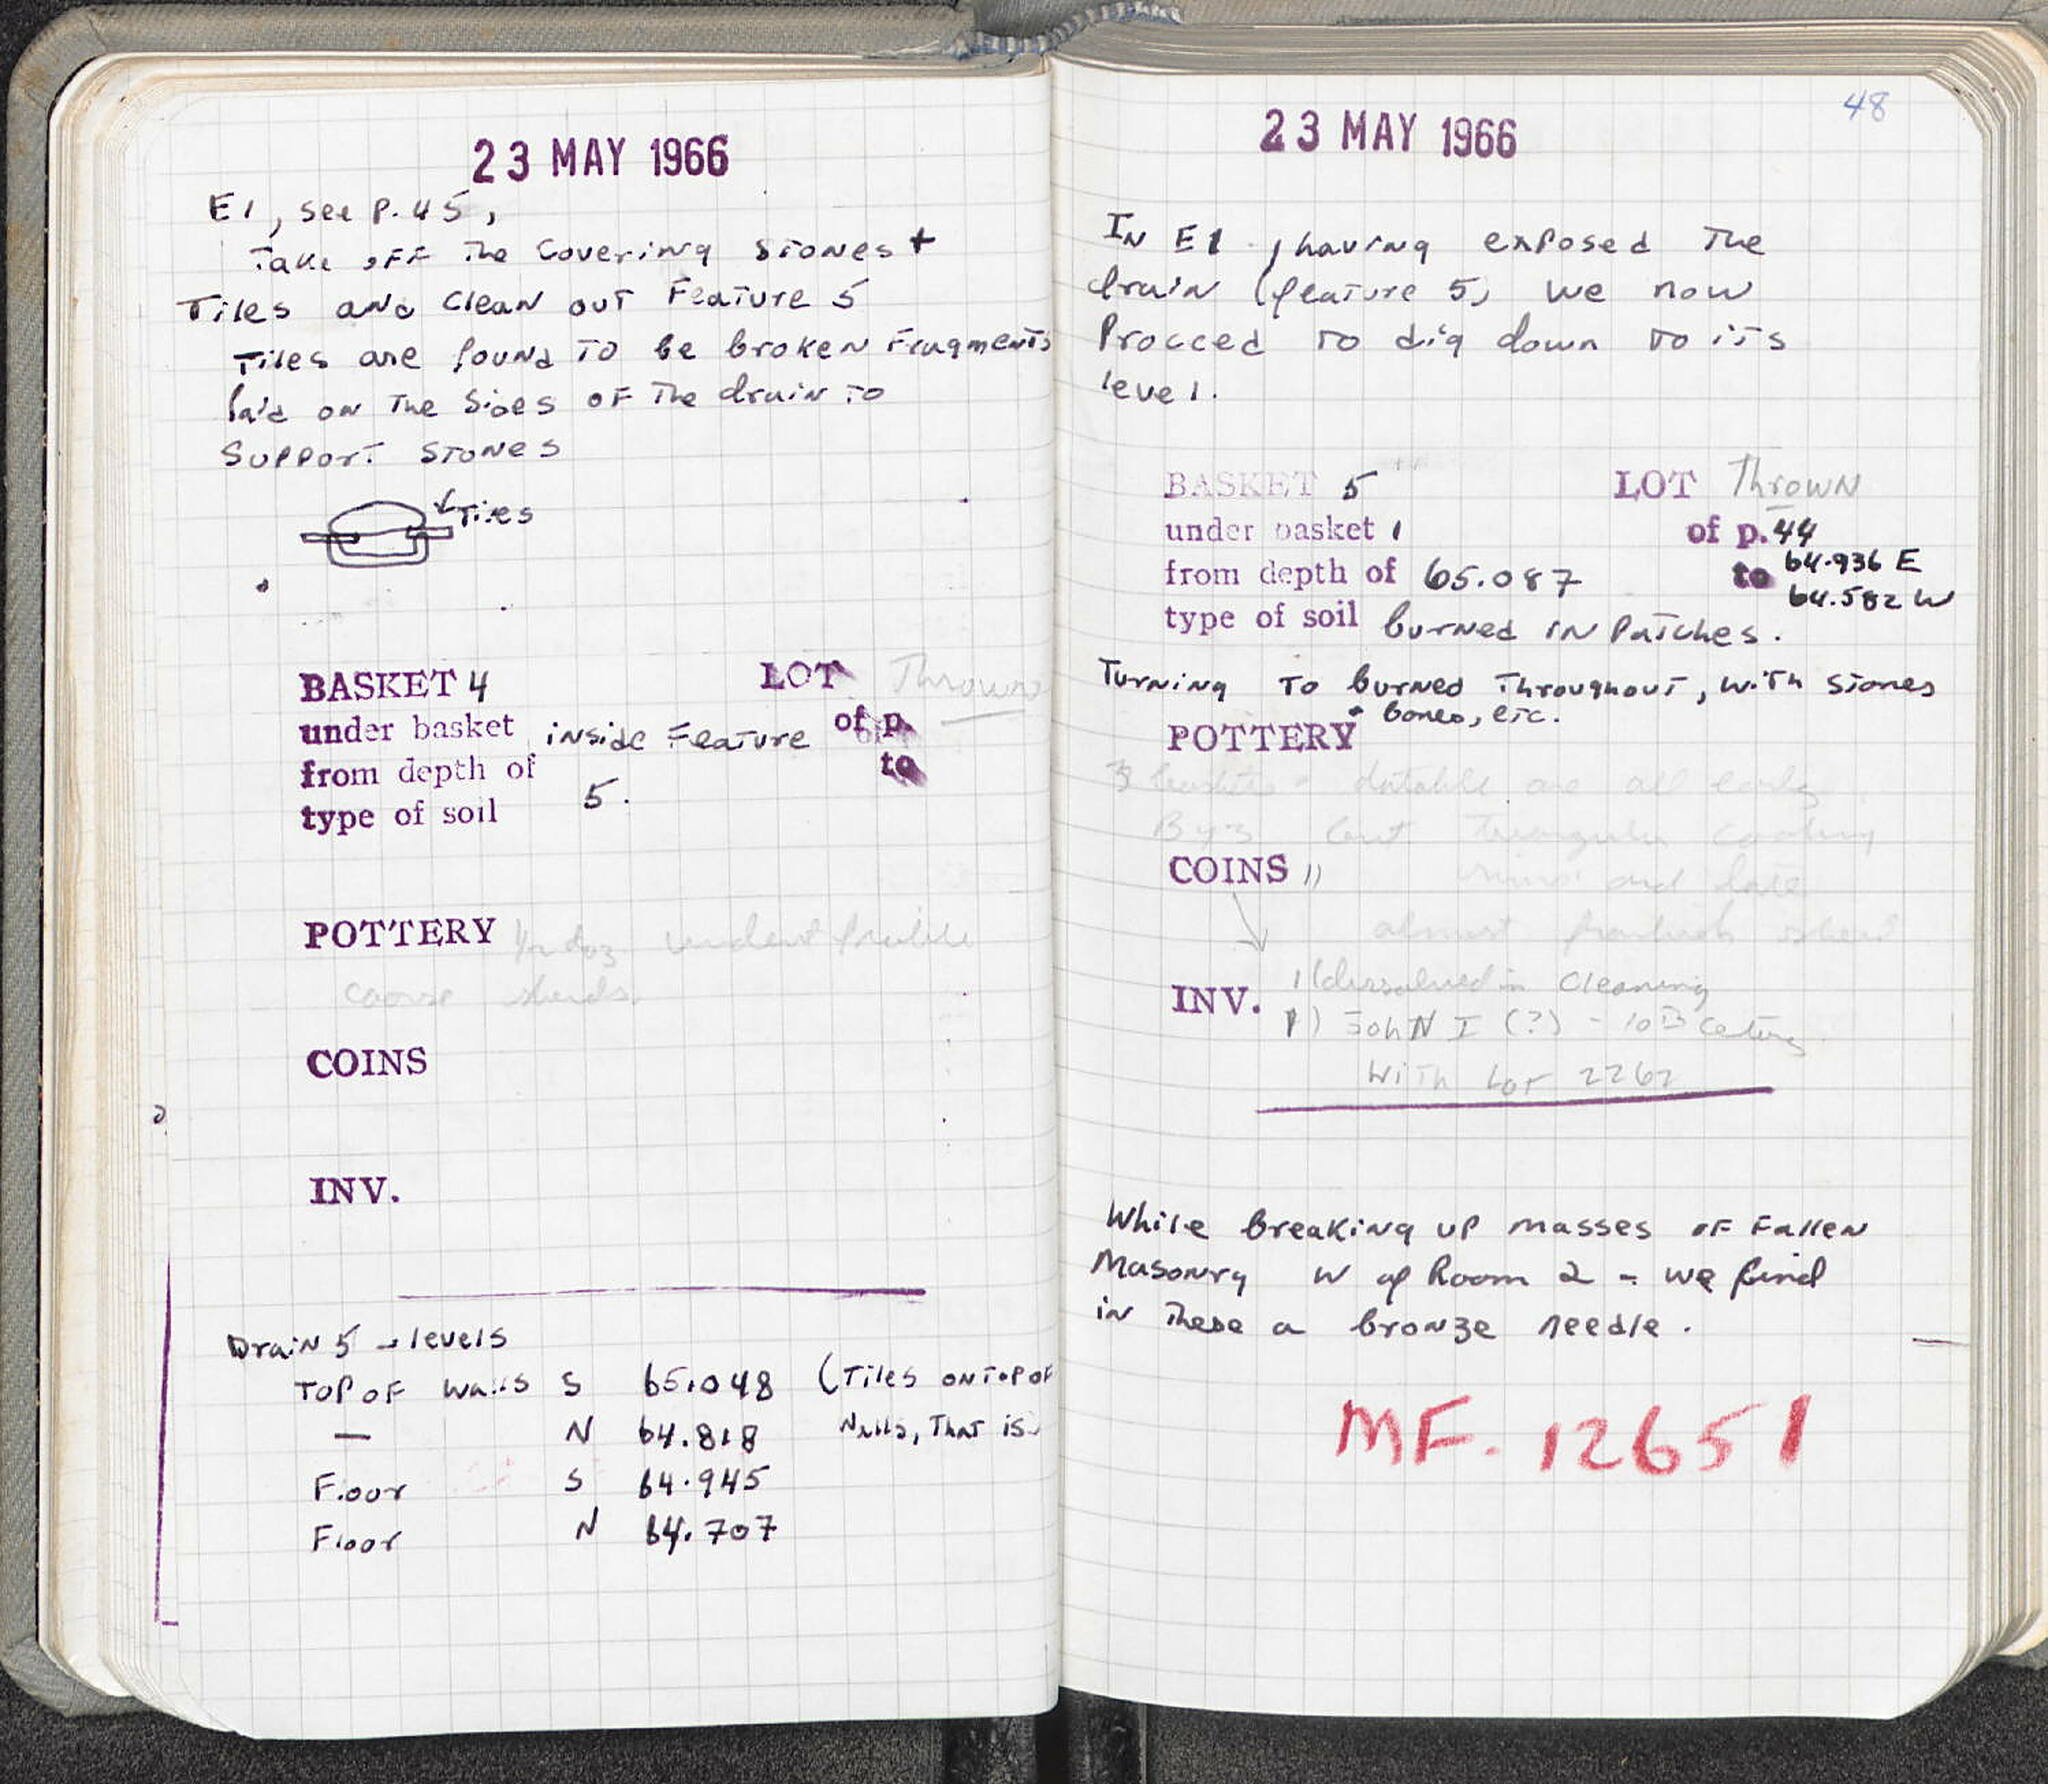 23 MAY 1966
E1, see P. 45,
Take off The Covering Stones +
Tiles and Clean out Feature 5
Tiles are found To be broken Fragments
laid on The Sides of The drain To
Support Stones
Tiles
BASKET 4 LOT Thrown
under basket inside Feature of p.
from depth of 5. to
type of soil
POTTERY
coarse sherds.
COINS
INV.
Drain 5 - levels
Top of walls S 65.048 (Tiles on Top of
— N 64.818 Walls, That is.
Floor S 64.945
Floor N 64.707
48
23 MAY 1966
In E1, having exposed The
drain (feature 5) we now
Proceed To dig down To its
level.
BASKET 5 LOT Thrown
under basket 1 of p. 44
from depth of 65.087 to 64.936 E
64.582 W
type of soil burned in Patches.
Turning To burned Throughout, with Stones
+ bones, etc.
POTTERY
3 baskets - datable are all early
Byz but Triangular cooking
COINS 11 rims and late
almost
1 (dissolved in Cleaning
INV. 1) John I (?) - 10th Century
With Lot 2262
While breaking up masses of Fallen
Masonry W of Room 2 - we find
in These a bronze needle.
MF. 12651